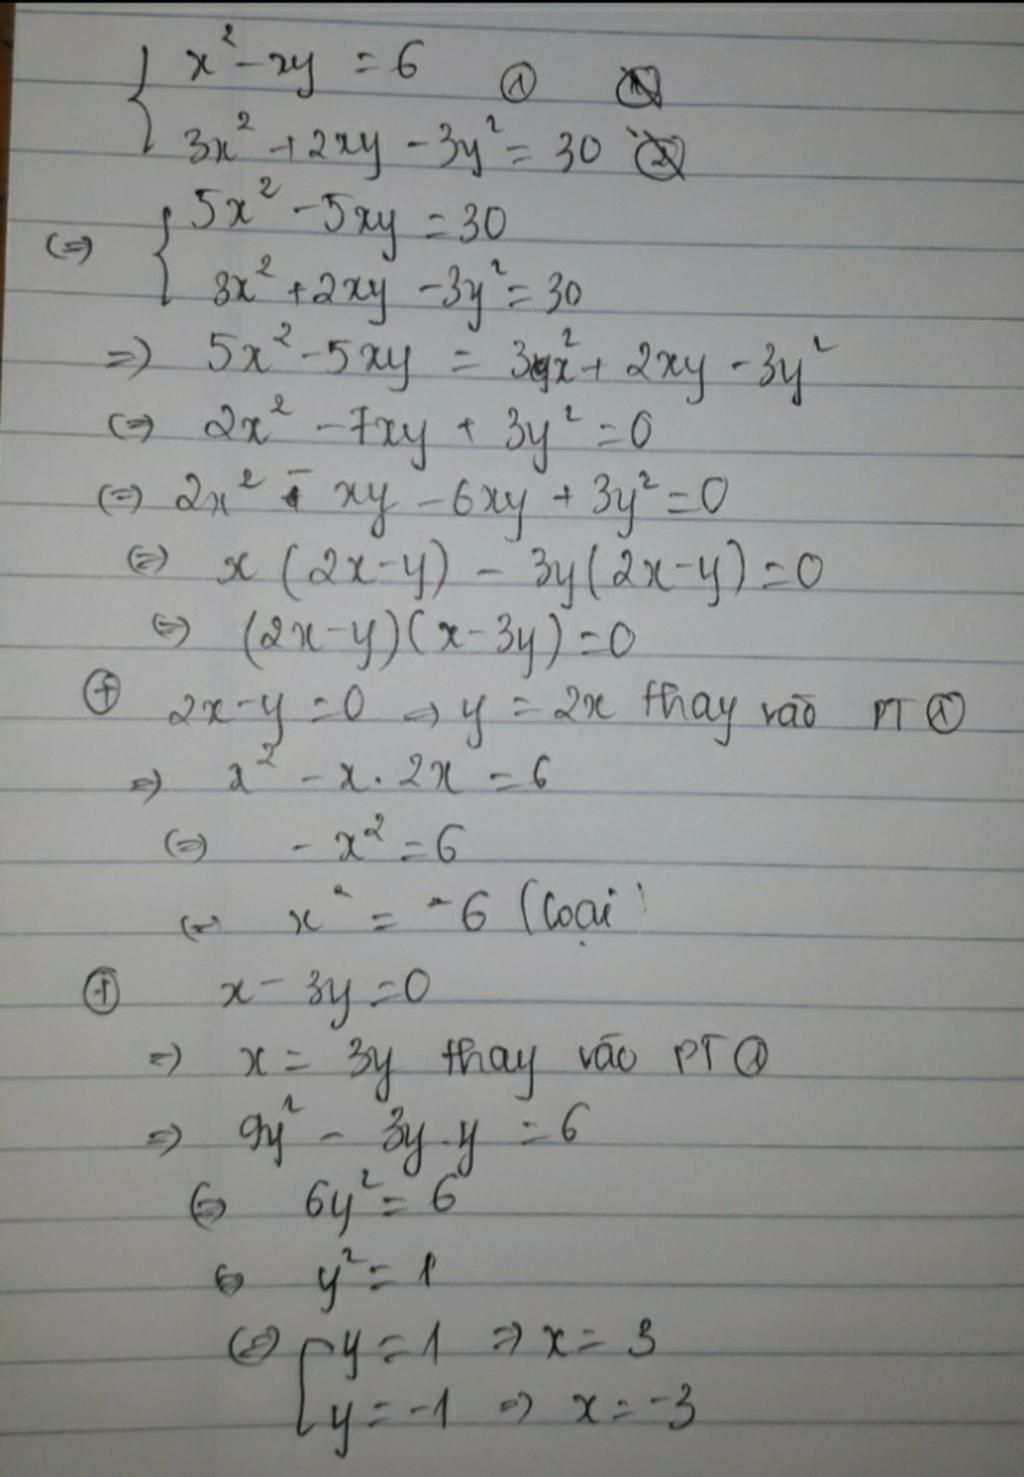 { x² - xy = 6 ①
3x² + 2xy - 3y² = 30
⇔ { 5x² - 5xy = 30
3x² + 2xy - 3y² = 30
⇒ 5x² - 5xy = 3x² + 2xy - 3y²
⇔ 2x² - 7xy + 3y² = 0
⇔ 2x² - xy - 6xy + 3y² = 0
⇔ x (2x - y) - 3y (2x - y) = 0
⇔ (2x - y)(x - 3y) = 0
⊕ 2x - y = 0 ⇒ y = 2x thay vào PT ①
⇒ x² - x . 2x = 6
⇔ - x² = 6
⇔ x² = -6 (loại)
⊕ x - 3y = 0
⇒ x = 3y thay vào PT ①
⇒ 9y² - 3y . y = 6
⇔ 6y² = 6
⇔ y² = 1
⇔ [ y = 1 ⇒ x = 3
y = -1 ⇒ x = -3